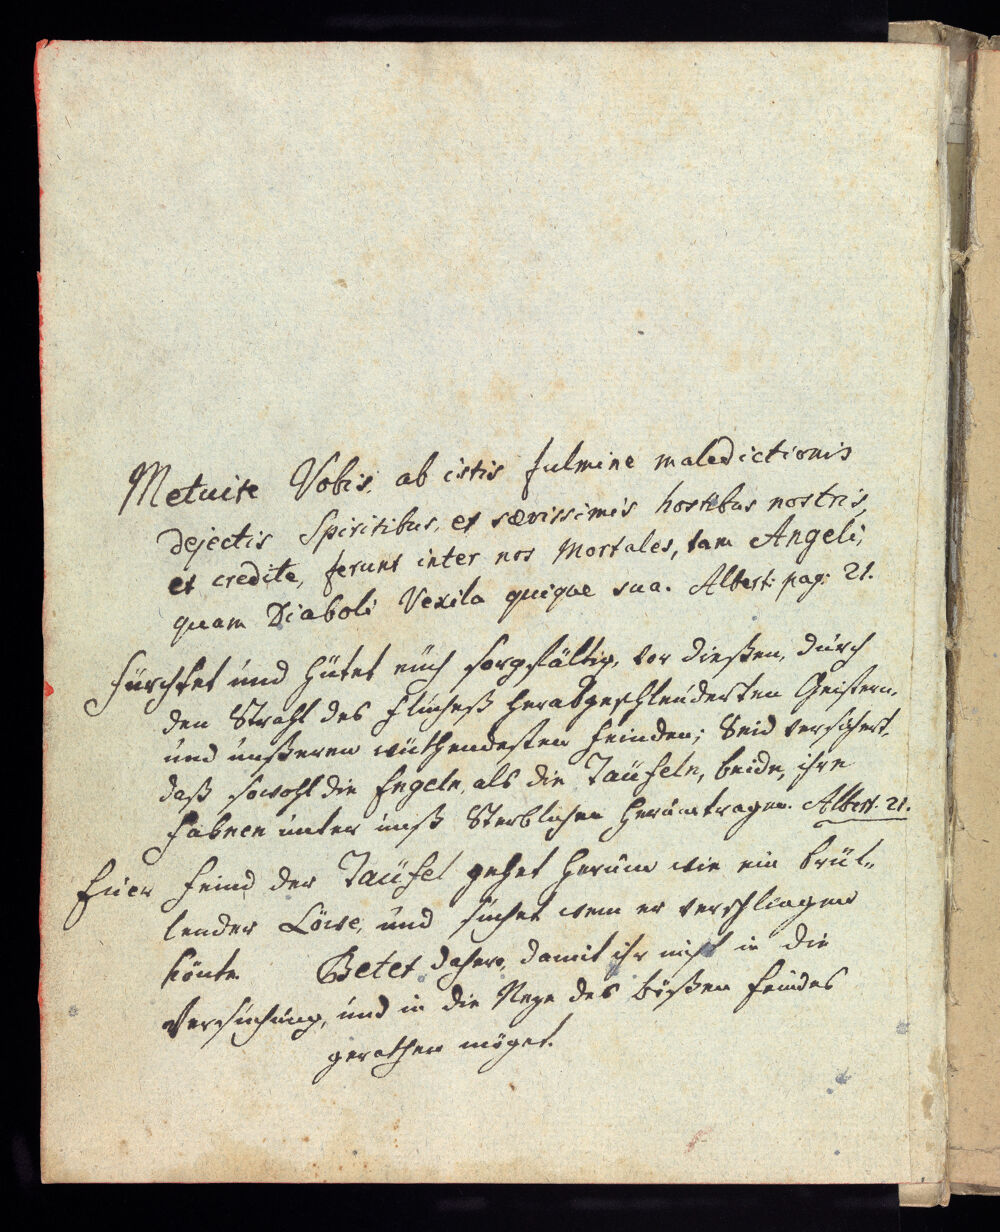 Metuite Vobis ab istis fulmine maledictionis
dejectis Spiritibus, et sævissimis hostibus nostris,
et credite, ferunt inter nos Mortales, tam Angeli,
quam Diaboli Vexila quique sua. Albert: pag: 21.
Fürchtet und hütet euch sorgfältig, vor dießen, durch
den Strahl des Flucheß herabgeschleuderten Geistern,
und unßeren wüthendesten Feinden; Seid versichert,
daß sowohl die Engeln, als die Taüfeln, beide, ihre
Fahnen unter unß Sterblichen herumtragen. Albert. 21.
Euer Feind der Taüfel gehet herum wie ein brül„
lender Löwe, und suchet wem er verschlingen
könte. Betet dahero, damit ihr nicht in die
Versuchung, und in die Neze des bößen Feindes
gerathen möget.